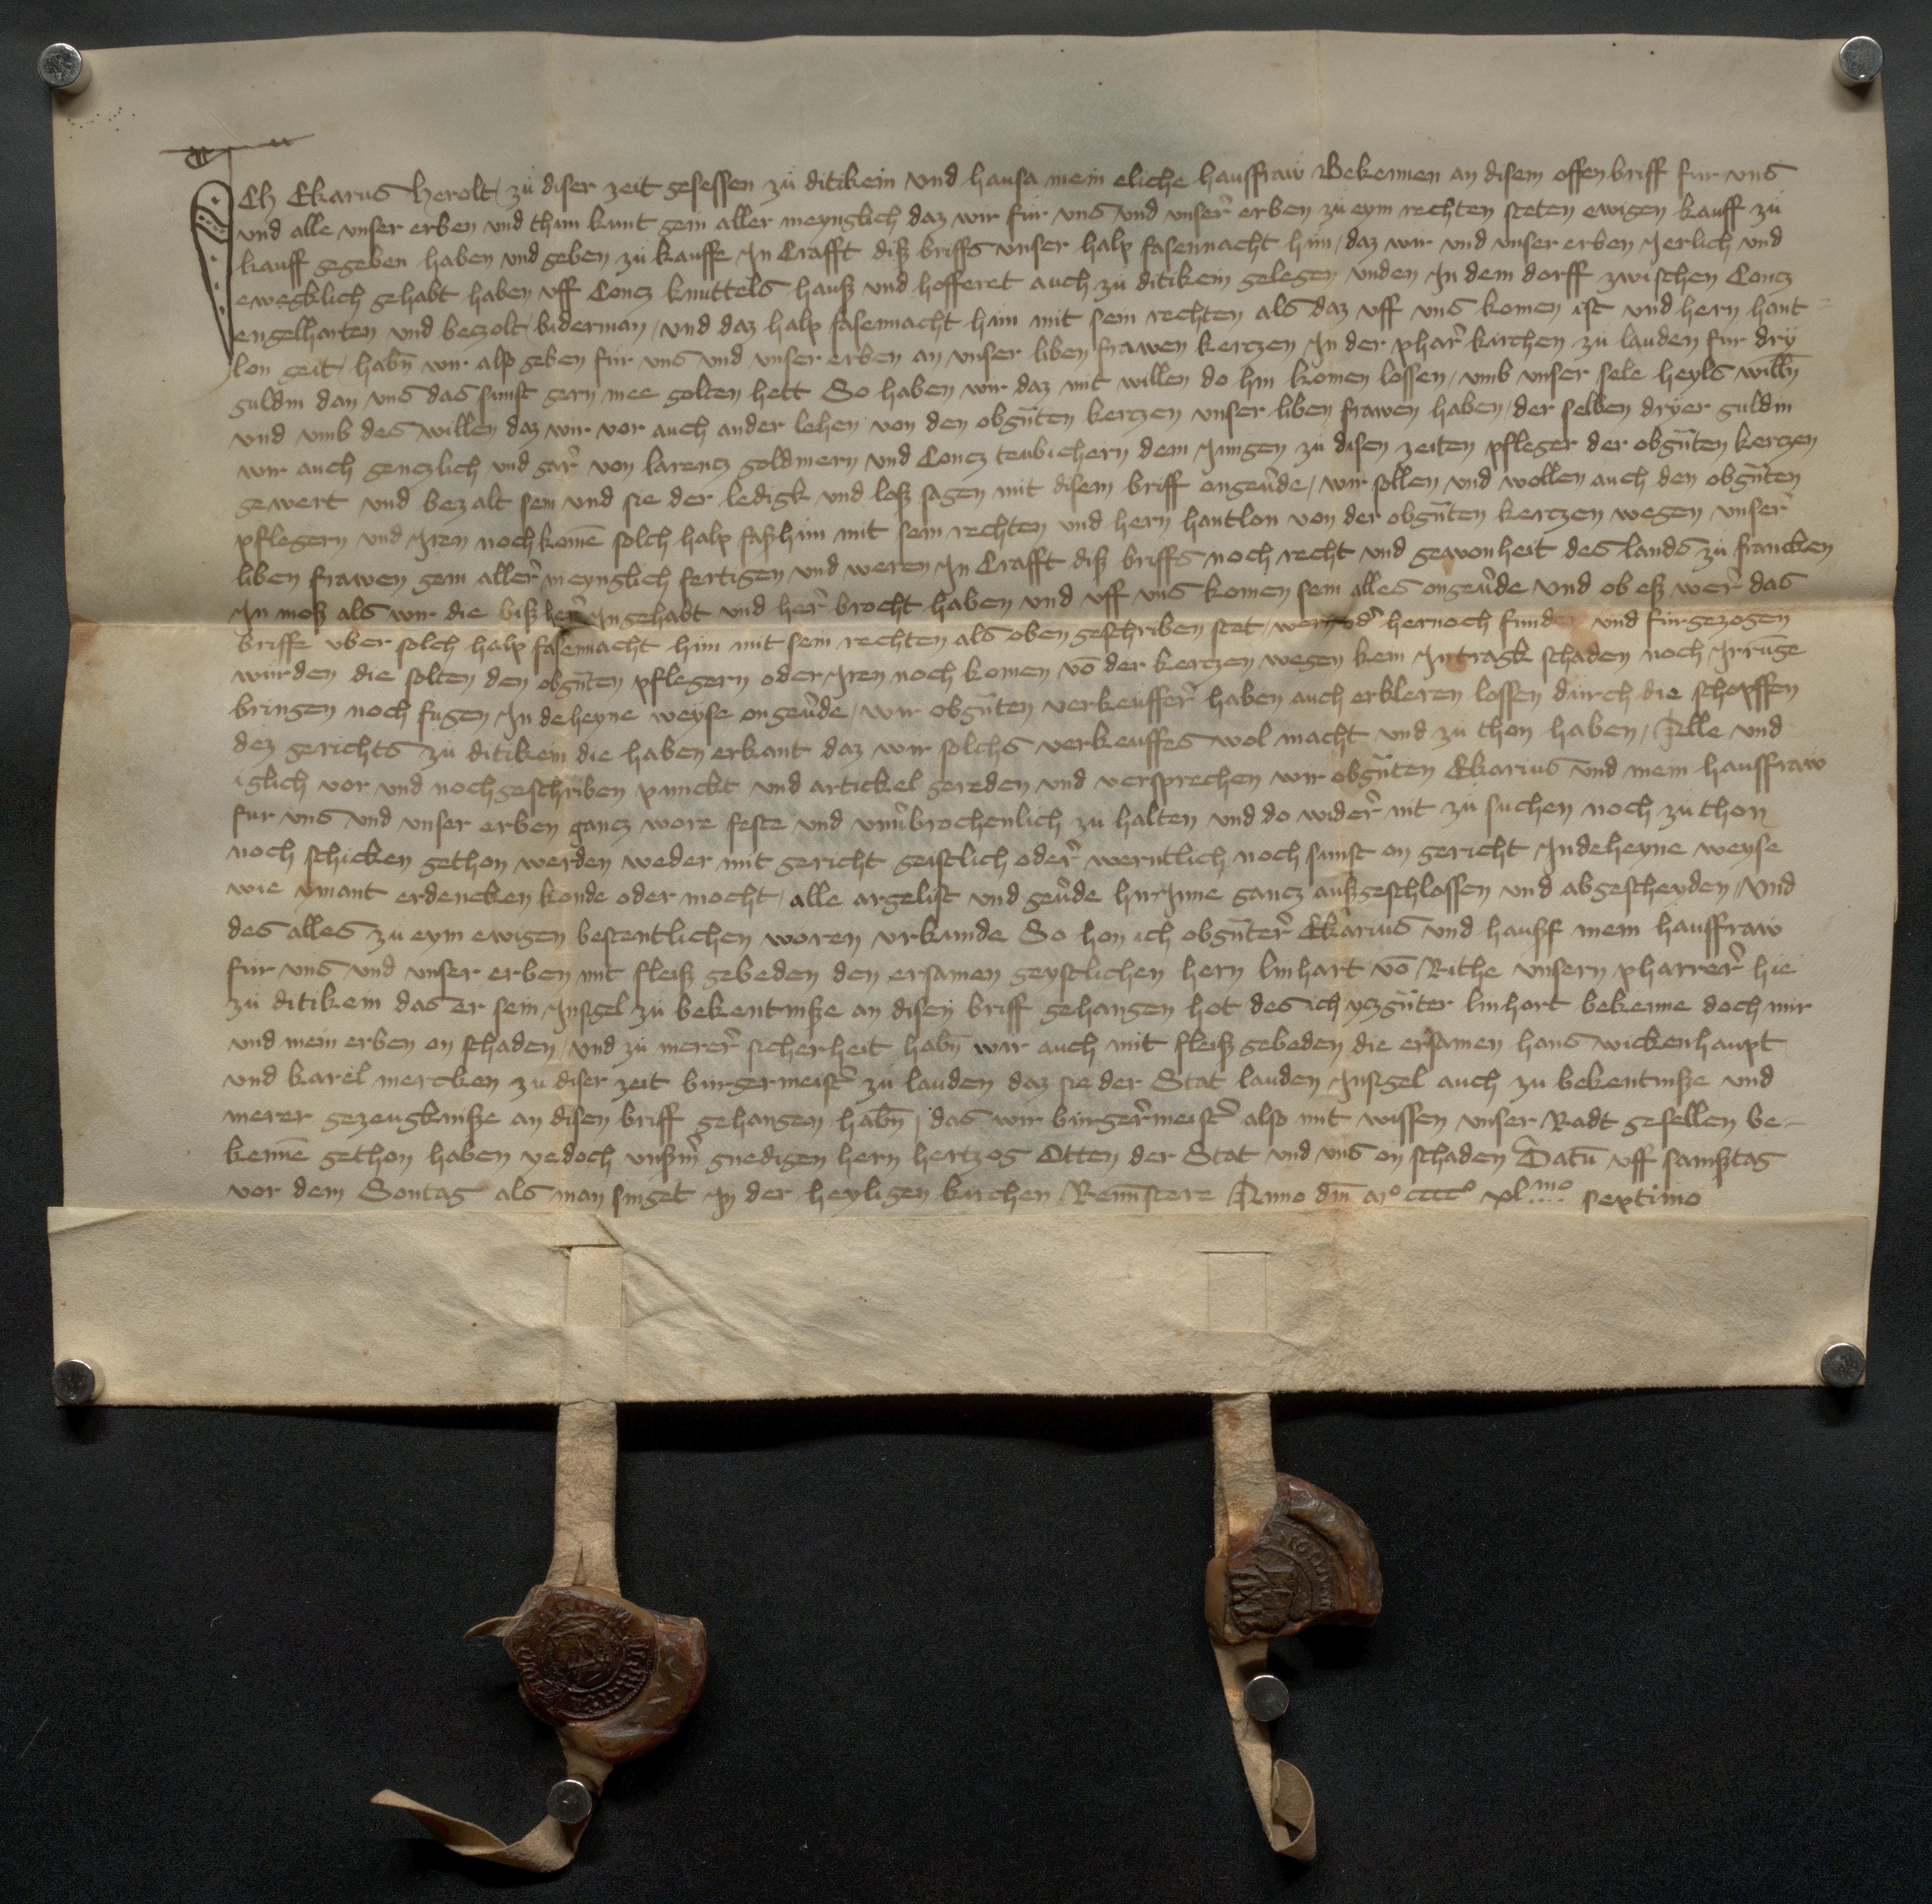 ICh Ekarius Herolt zu diser zeit gesessen zu ditikein vnd hausa mein eliche hausfraw Bekennen an disem offen briff fur vns
vnd alle vnser erben vnd thun kunt gein aller meynglich daz wir fur vns vnd vnser erben zu eym rechten steten ewigen kauff zu
kauff gegeben haben vnd geben zu kauffe In Crafft diß briffs vnser halp fasennacht hun daz wir vnd vnser erben Jerlich vnd
ewegklich gehabt haben vff Concz knuttels hauß vnd hofferet auch zu ditikein gelegen vnden In dem dorff zwischen Concz
engelharten vnd beczolt biderman vnd daz halp fasennacht hun mit sein rechten als daz vff vns komen ist vnd hern hant
lon geit habn̄ wir alß geben fur vns vnd vnser erben an vnser liben frawen kertzen In der pharr kirchen zu lauden fur dry
guldin dan vns das sunst gern mee golten hett So haben wir daz mit willen do hin komen lossen vmb vnser sele heyls willn̄
vnd vmb des willen daz wir vor auch ander lehen von den obgnt̄en kertzen vnser liben frawen haben der selben dryer guldin
wir auch genczlich vnd gar von larencz goldmern vnd Concz teubichern dem Jungen zu disen zeiten pfleger der obgnt̄en kertzen
gewert vnd bezalt sein vnd sie der ledigk vnd loß sagen mit disem briff ongeũde wir sollen vnd wollen auch den obgnt̄en
pflegern vnd Jren nochkomē solch halp faßhun mit sein rechten vnd hern hantlon von der obgnt̄en kertzen wegen vnser
liben frawen gein aller meynglich fertigen vnd weren In Crafft diß briffs noch recht vnd gewonheit des lands zu francken
In moß als wir die biß her Ingehabt vnd her brocht haben vnd vff vns komen sein alles ongeũde vnd ob eß wer das
briffe vber solch halp fasennacht hun mit sein rechten als oben geschriben stet hernoch funden vnd furgezogen
wurden die solten den obgnt̄en pflegern oder Jren noch komen vō der kertzen wegen kein Intragk schaden noch Jrrūge
bringen noch fugen In deheyne weyse ongeũde wir obgnt̄en verkeuffer haben auch erkleren lossen durch die schopffen
dez gerichts zu ditikein die haben erkant daz wir solchs verkeuffes wol macht vnd zu thon haben Alle vnd
iglich vor vnd nochgeschriben punckt vnd artickel gereden vnd versprechen wir obgnt̄en Ekarius vnd mein hausfraw
fur vns vnd vnser erben gancz wore feste vnd vnũbrochenlich zu halten vnd do wider nit zu suchen noch zu thon
noch schicken gethon werden weder mit gericht geistlich oder werntlich noch sunst on gericht In deheyne weyse
wie ymant erdencken konde oder mocht alle argelist vnd geũde hir Inne gancz außgeschlossen vnd abgescheyden Vnd
des alles zu eym ewigen bestentlichen woren vrkunde So hon ich obgnt̄er Ekarius vnd hauß mein hausfraw
fur vns vnd vnser erben mit fleiß gebeden den ersamen geystlichen hern linhart vō Rithe vnsern pharrer hie
zu ditikein das er sein Insigel zu bekentniße an disen briff gehangen hot des ich yczgnt̄er linhart bekenne doch mir
vnd mein erben on schaden vnd zu merer sicherheit habn̄ wir auch mit fleiß gebeden die ersamen hans wickenhaupt
vnd karel mercken zu diser zeit burgermeister zu lauden daz sie der Stat lauden Insigel auch zu bekentniße vnd
merer gezeugkniße an disen briff gehangen habn̄ das wir burgermeister also mit wissen vnser Radt gesellen be-
kennē gethon haben yedoch vnsserm gnedigen hern hertzog Otten der Stat vnd vns on schaden Datū vff samßtag
vor dem Sontag als man singet In der heyligen kirchen Reminiscere Anno dm̄ mo cccco xlmo septimo